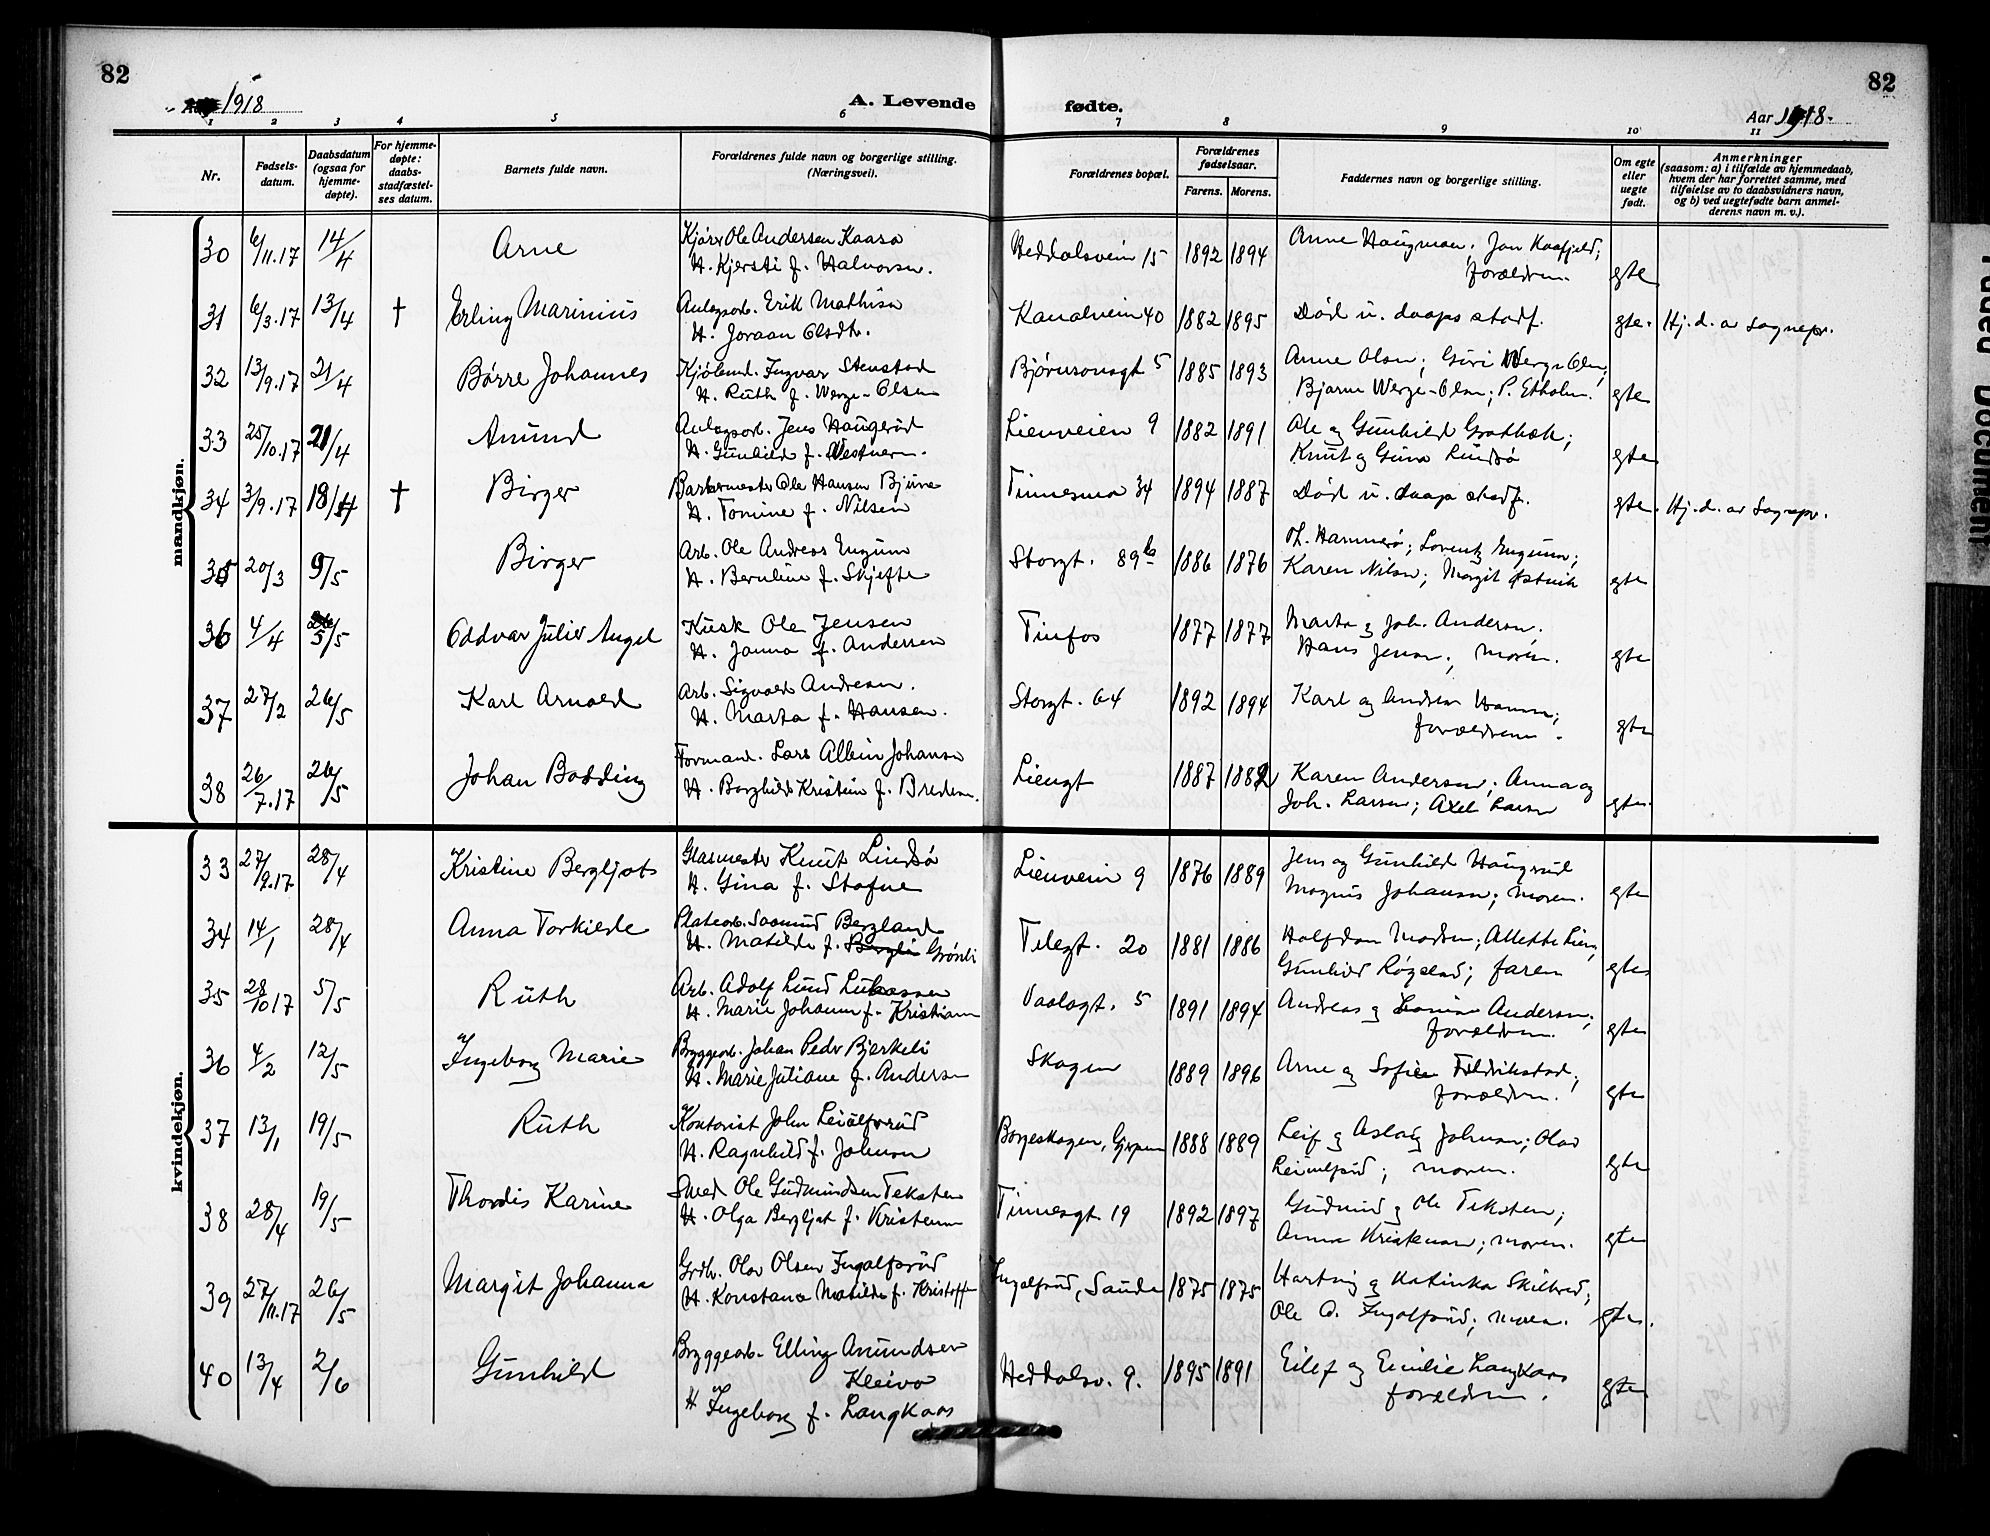 82
82
1918
A. Levende
fødte.
Aar 1918.
1 2 3 4 5 6 7 8 9 10 11
Nr.
Fødsels-
datum.
Daabsdatum
(ogsaa for
hjemme-
døpte).
For hjemme-
døpte:
daabs-
stadfæstel-
ses datum.
Barnets fulde navn.
Forældrenes fulde navn og borgerlige stilling.
(Næringsvei).
Forældrenes bopæl.
Forældrenes
fødselsaar.
Farens. Morens.
Faddernes navn og borgerlige stilling.
Om egte
eller
uegte
født.
Anmerkninger
(saasom: a) i tilfælde av hjemmedaab,
hvem der har forrettet samme, med
tilføielse av to daabsvidners navn,
og b) ved uegtefødte barn anmel-
derens navn m. v.).
mandkjøn.
30 6/11.17 14/4 Arne Kjører Ole Andersen Kaasa Heddalsvein 15 1892 1894 Anne Haugmoen; Jon Kaafjeld; egte
H. Kjersti f. Halvorsen. forældrene
31 6/3.17 13/4 † Erling Marinius Anlagsarb. Erik Mathisen Kanalvein 40 1882 1895 Død u. daaps stadf. egte. Hj. d. av Sognepr.
H. Joraan Olsdtr.
32 13/9.17 21/4 Børre Johannes Kjøbmd. Ingvar Stenstad Bjørnsonsgt 5 1885 1893 Anne Olsen; Guri Werge-Olsen; egte
H. Ruth f. Werge-Olsen Bjarne Werge-Olsen; P. Etholm.
33 25/10.17 21/4 Anund Anlagsarb. Jens Haugerød Lienveien 9 1882 1891 Ole og Gunhild Grotbæk; egte
H. Gunhild f. Vestnern. Knut og Gina Lindsø
34 3/9.17 18/4 † Birger Barbermester Ole Hansen Bjune Tinnesmo 34 1894 1887 Død u. daaps stadf. egte. Hj. d. av Sognepr.
H. Tomine f. Nilsen
35 20/3 9/5 Birger Arb. Ole Andreas Engum Storgt. 89b 1886 1876 Th. Hammerø; Lorentz Engum; egte
H. Bernline f. Skjefte Karen Nilsen; Margit Østvik
36 4/4 5/5 Oddvar Julius Angel Kusk Ole Jensen Tinfos 1877 1877 Marta og Joh. Andersen. egte
H. Janna f. Andersen Hans Jensen; moren.
37 27/2 26/5 Karl Arnold Arb. Sigvald Andresen. Storgt. 64 1892 1894 Karl og Andrea Hansen; egte
H. Marta f. Hansen. forældrene.
38 26/7.17 26/5 Johan Bodding Formand. Lars Albein Johansen Liengt 1887 1882 Karen Andersen; Anna og egte
H. Borghild Kristine f. Bredesen. Joh. Larsen; Axel Larsen
kvindekjøn.
33 27/9.17 28/4 Kristine Bergljot Glasmester Knut Lindsø Lienvein 9 1876 1889 Jens og Gunhild Haugrud egte
H. Gina f. Stafne Magnus Johansen; moren.
34 14/1 28/4 Anna Torkilde Platearb. Saamund Bergland Telegt. 20 1881 1886 Halfdan Madsen; Allette Lien, egte
H. Matilde f. Grønli Gunhild Røgelad; faren
35 28/10 17 5/5 Ruth Arb. Adolf Lund Lukassen Vaalagt. 5 1891 1894 Andreas og Andersen; egte
H. Marie Johanne f. Kristiansen forældrene.
36 4/2 12/5 Ingeborg Marie Bryggearb. Johan Peder Bjerkeli Skogen 1889 1896 Arne og Sofie Fredrikstad; egte
H. Marie Juliane f. Andersen forældrene.
37 13/1 19/5 Ruth Kontorist John Leiulfsrud Borgeskogen, Gjerpen 1888 1889 Leif og Aslaug Johnsen; Olav egte
H. Ragnhild f. Johnsen Leiulfsrud; moren.
38 28/4 19/5 Thordis Karine Smed Ole Gudmundsen Teksten Tinnesgt. 19 1892 1897 Gudmund og Ole Teksten; egte
H. Olga Bergljot f. Kristensen Anna Kristensen; moren.
39 27/11.17 26/5 Margit Johanna Grdbr. Olav Olsen Ingolfsrud Ingolfsrud, Saude 1875 1875 Hartvig og Katinka Skilbred; egte.
H. Konstanse Matilde f. Kristoffersen Ole O. Ingolfsrud; moren.
40 13/4 2/6 Gunhild Bryggearb. Elling Anundsen Heddalsv. 9. 1895 1891 Eilef og Emilie Langkaas egte
Kleiva forældrene.
H Ingeborg f. Langkaas